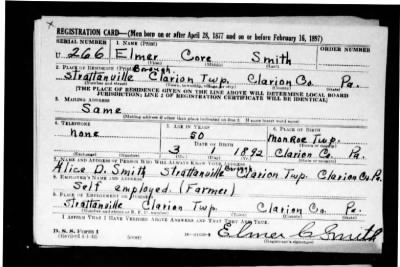 REGISTRATION CARD—(Men born on or after April 28, 1877 and on or before February 16, 1897)
SERIAL NUMBER 1. NAME (Print) ORDER NUMBER
U 266 Elmer Core Smith
(First) (Middle) (Last)
2. PLACE OF RESIDENCE (Print) Borough
Strattanville Clarion Twp. Clarion Co. Pa.
(Number and street) (Town, township, village, or city) (County) (State)
[THE PLACE OF RESIDENCE GIVEN ON THE LINE ABOVE WILL DETERMINE LOCAL BOARD
JURISDICTION; LINE 2 OF REGISTRATION CERTIFICATE WILL BE IDENTICAL]
3. MAILING ADDRESS
Same
[Mailing address if other than place indicated on line 2. If same insert word same]
4. TELEPHONE 5. AGE IN YEARS 6. PLACE OF BIRTH
none 50 Monroe Twp.
DATE OF BIRTH (Town or county)
3 1892 Clarion Co. Pa.
(Exchange) (Number) (Mo.) (Day) (Yr.) (State or country)
7. NAME AND ADDRESS OF PERSON WHO WILL ALWAYS KNOW YOUR ADDRESS
Alice D. Smith Strattanville Boro Clarion Twp. Clarion Co. Pa.
8. EMPLOYER'S NAME AND ADDRESS
Self employed (Farmer)
9. PLACE OF EMPLOYMENT OR BUSINESS
Strattanville Clarion Twp. Clarion Co. Pa.
(Number and street or R. F. D. number) (Town) (County) (State)
I AFFIRM THAT I HAVE VERIFIED ABOVE ANSWERS AND THAT THEY ARE TRUE.
D. S. S. Form 1
Elmer C Smith
(Registrant's signature)